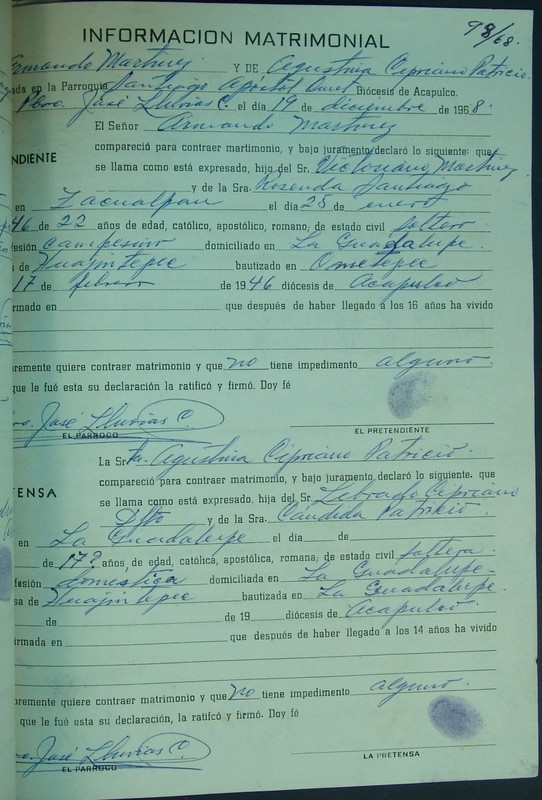 98/68.
INFORMACION MATRIMONIAL
Armando Martinez Y DE Agustina Cipriano Patricio.
ada en la Parroquia Santiago Apóstol Diócesis de Acapulco.
Pbro. José Lluvias C. el día 19 de diciembre de 1968.
El Señor Armando Martinez
compareció para contraer martimonio, y bajo juramento declaró lo siguiente: que
NDIENTE
se llama como está expresado, hijo del Sr. Victoriano Martinez
y de la Sra. Rosenda Santiago
en Zacualpan el día 25 de enero
46 de 22 años de edad, católico, apostólico, romano; de estado civil soltero
esión campesino domiciliado en La Guadalupe.
de Huajintepec bautizado en Ometepec
17 de febrero de 1946 diócesis de Acapulco
irmado en que después de haber llegado a los 16 años ha vivido
bremente quiere contraer matrimonio y que no tiene impedimento alguno.
que le fué esta su declaración la ratificó y firmó. Doy fé
José Lluvias C.
EL PARROCO EL PRETENDIENTE
La Srta. Agustina Cipriano Patricio.
compareció para contraer matrimonio, y bajo juramento declaró lo siguiente. que
TENSA
se llama como está expresado, hija del Sr. Librado Cipriano
Dfto y de la Sra. Cándida Patricio.
en La Guadalupe el día de
de 17? años, de edad, católica, apostólica, romana; de estado civil soltera.
esión doméstica domiciliada en La Guadalupe-
sa de Huajintepec bautizada en La Guadalupe.
de de 19 diócesis de Acapulco.
irmada en que después de haber llegado a los 14 años ha vivido
bremente quiere contraer matrimonio y que no tiene impedimento alguno.
que le fué esta su declaración, la ratifcó y firmó. Doy fé
José Lluvias C.
EL PARROCO LA PRETENSA